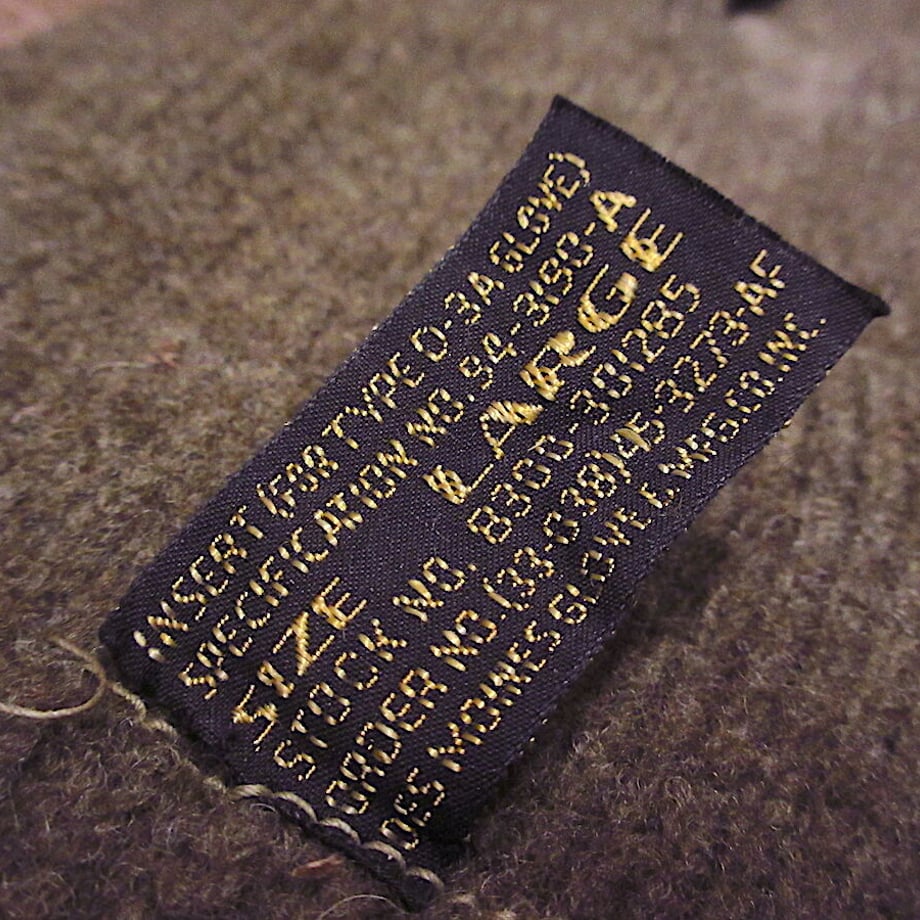 INSERT (FOR TYPE D-3A GLOVE)
SPECIFICATION NO. 94-3190-A
SIZE LARGE
STOCK NO. 8300-301285
ORDER NO. (33-038)45-3273-AF
DES MOINES GLOVE & MFG.CO.INC.